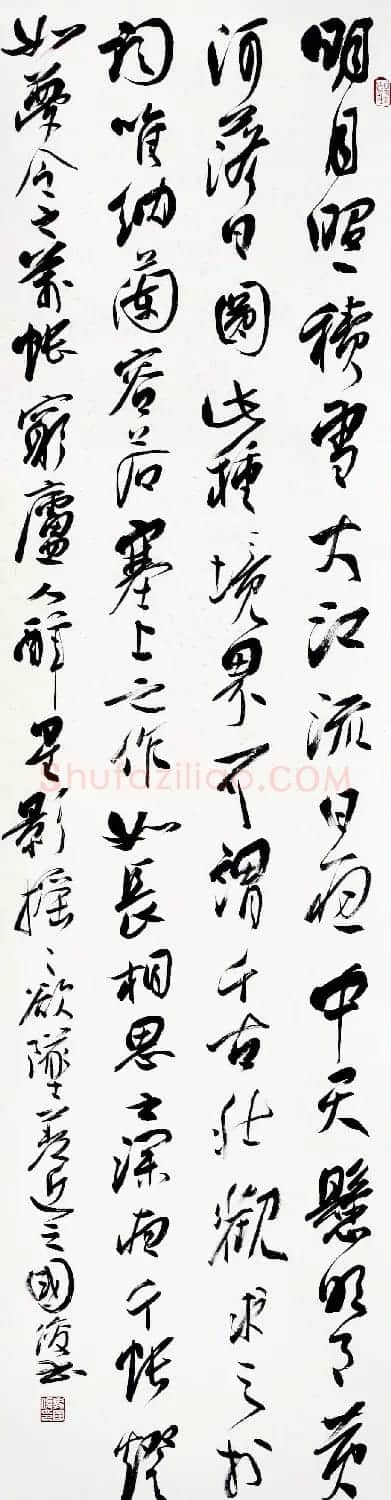 明月照積雪大江流日夜中天懸明月黄
河落日圓此種境界可謂千古壯觀求之於
詞唯納蘭容若塞上之作如長相思之深夜千帳燈
如夢令之萬帳穹廬人醉星影摇〻欲墜差近之國俊書
Shufaziliao.COM